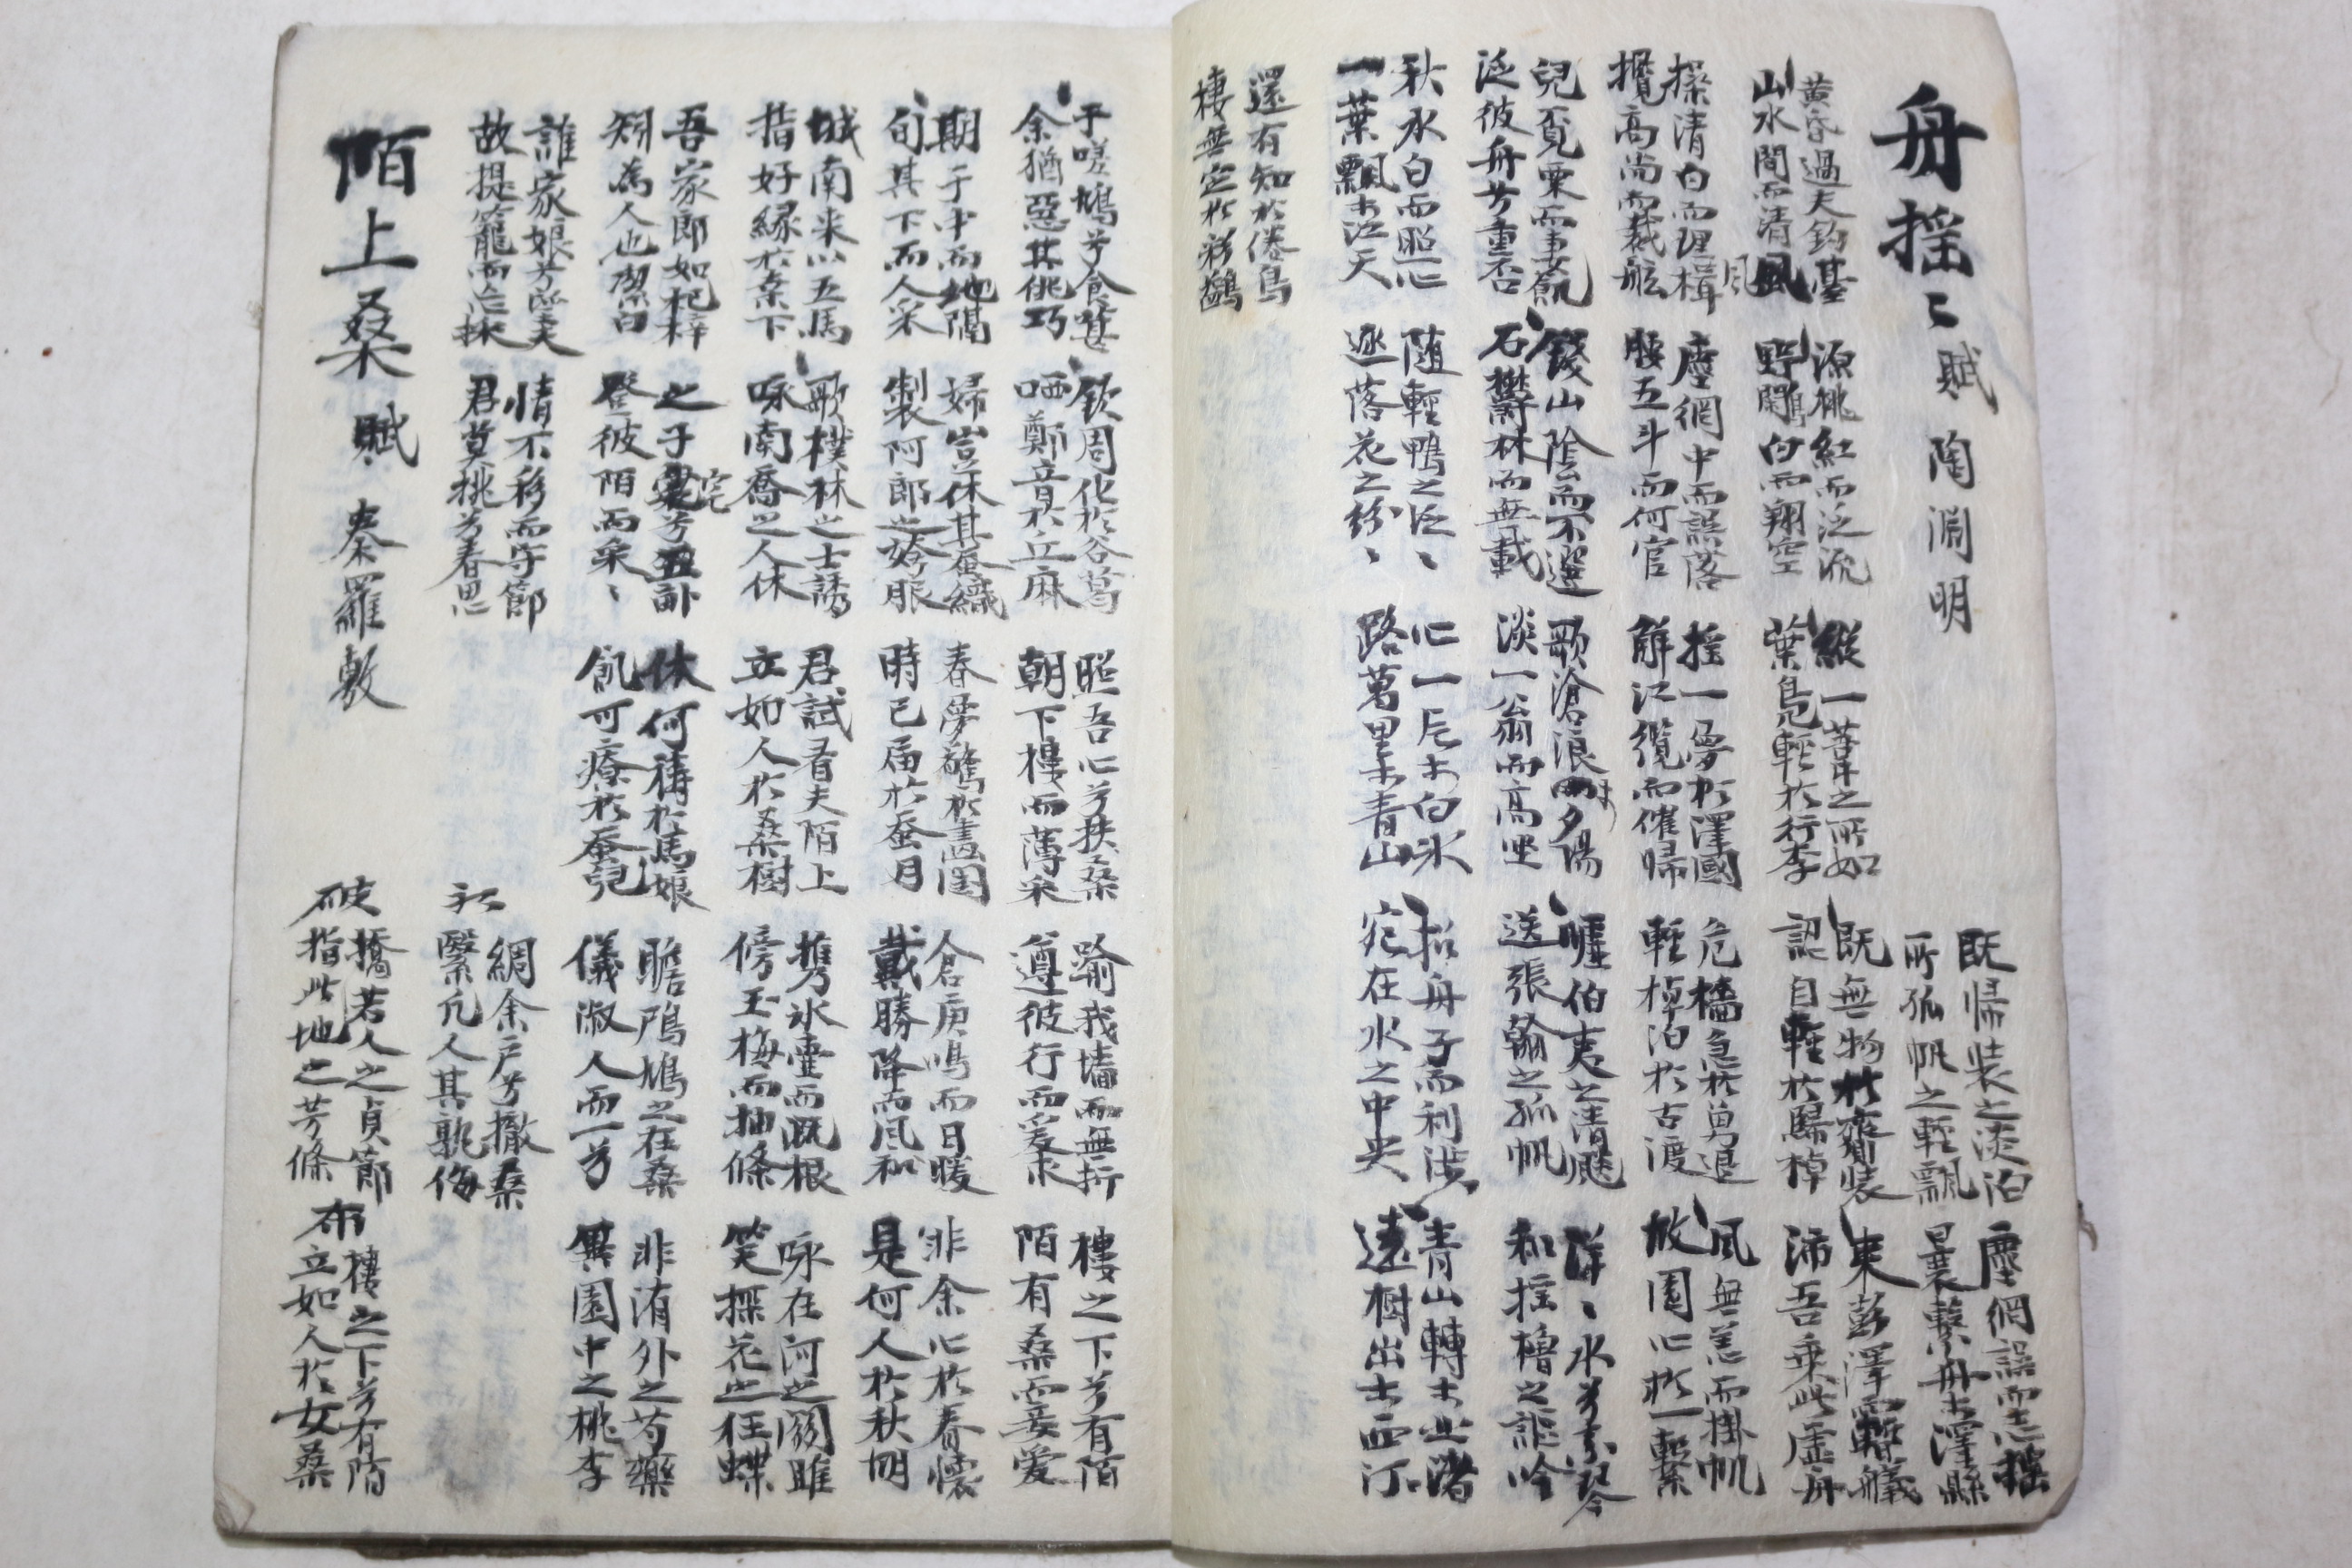 舟揺〻賦 陶淵明
既帰装之淡泊 塵網誤而志揺
所孤帆之輕飄 曩繫舟去澤縣
黄昏過夫釣基 源桃紅而泛流 縱一葦之所如 既無物於齎装 来彭澤而暫艤
山水間而清風 野鷳白而翔空 葉鳧輕於行李 認自輕於歸棹 沛吾乘此虛舟
操清白而理楫 塵網中而誤落 揺一夢於澤國 危檣急於勇退 風無恙而掛帆
攬高尚而裁舷 腰五斗而何官 解江纜而催帰 輕棹泊於古渡 故園心於一繫
兒覓栗而事飢 錢山陰而不選 歌滄浪夕陽 嘘伯夷之清飔 洋〻水兮素琴
泛彼舟兮重否 石欝林而無載 淡一翁而高坐 送張翰之孤帆 和揺櫓之謳吟
秋水白而照心 随輕鴨之泛〻 心一片去白水 招舟子而利涉 青山轉去之渚
一葉飄去江天 逐落花之紛〻 路萬里去青山 宛在水之中央 遠樹出去西汀
還有知於倦鳥
棲無定於彩鷁
于嗟鳩兮食葚 欽周化於谷葛 照吾心兮扶桑 踰我墻而無折 樓之下兮有陌
余猶惡其佻巧 哂鄭音於丘麻 朝下樓而薄采 遵彼行而爰求 陌有桑而妾愛
期于中而地隔 婦豈休其蚕織 春夢驚於畵閣 倉庚鳴而日暖 非余心於春懷
旬其下而人采 製阿郎之婍服 時已届於蚕月 戴勝降而風和 是何人於秋胡
城南来以五馬 歌樸樕之士誘 君試看夫陌上 携氷壺而溉根 咏在河之關雎
指好緣於桑下 咏南喬之人休 立如人於桑樹 傍玉梅而抽條 笑探花之狂蝶
吾家郎如杞梓 之子兮丑卦 休何構於馬娘 瞻鳲鳩之在桑 非洧外之芍藥
矧為人也潔白 登彼陌而采〻 飢可療於蚕兒 儀淑人而一兮 異園中之桃李
誰家娘兮壄夫 情不移而守節 綢余户兮撤桑
故提籠而急採 君莫挑兮春思 緊凢人其孰侮
陌上桑賦 秦羅敷
橋若人之貞節 樓之下兮有陌
破指此地之芳條 布立如人於女桑